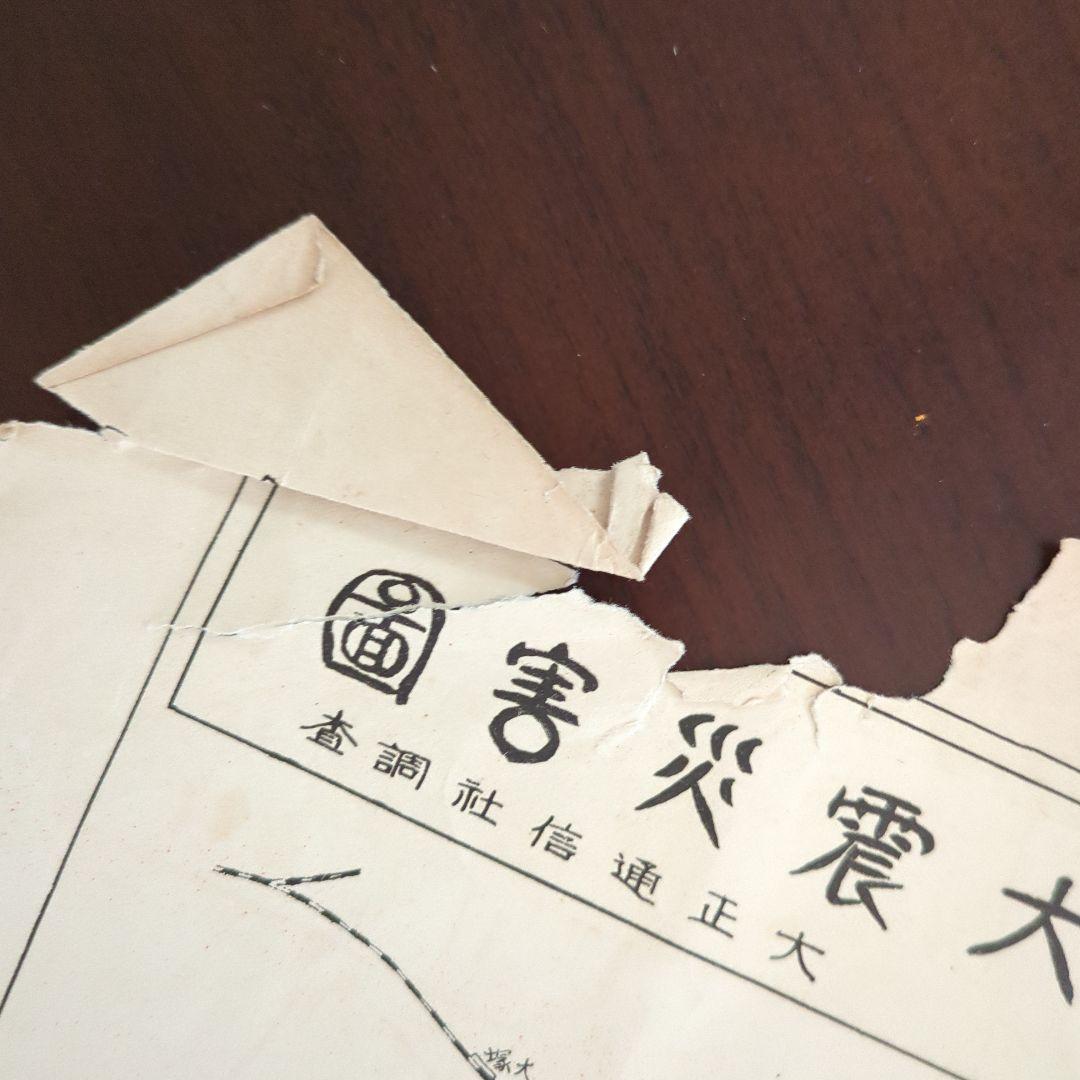 大震災害圖
大正通信社調査
大塚